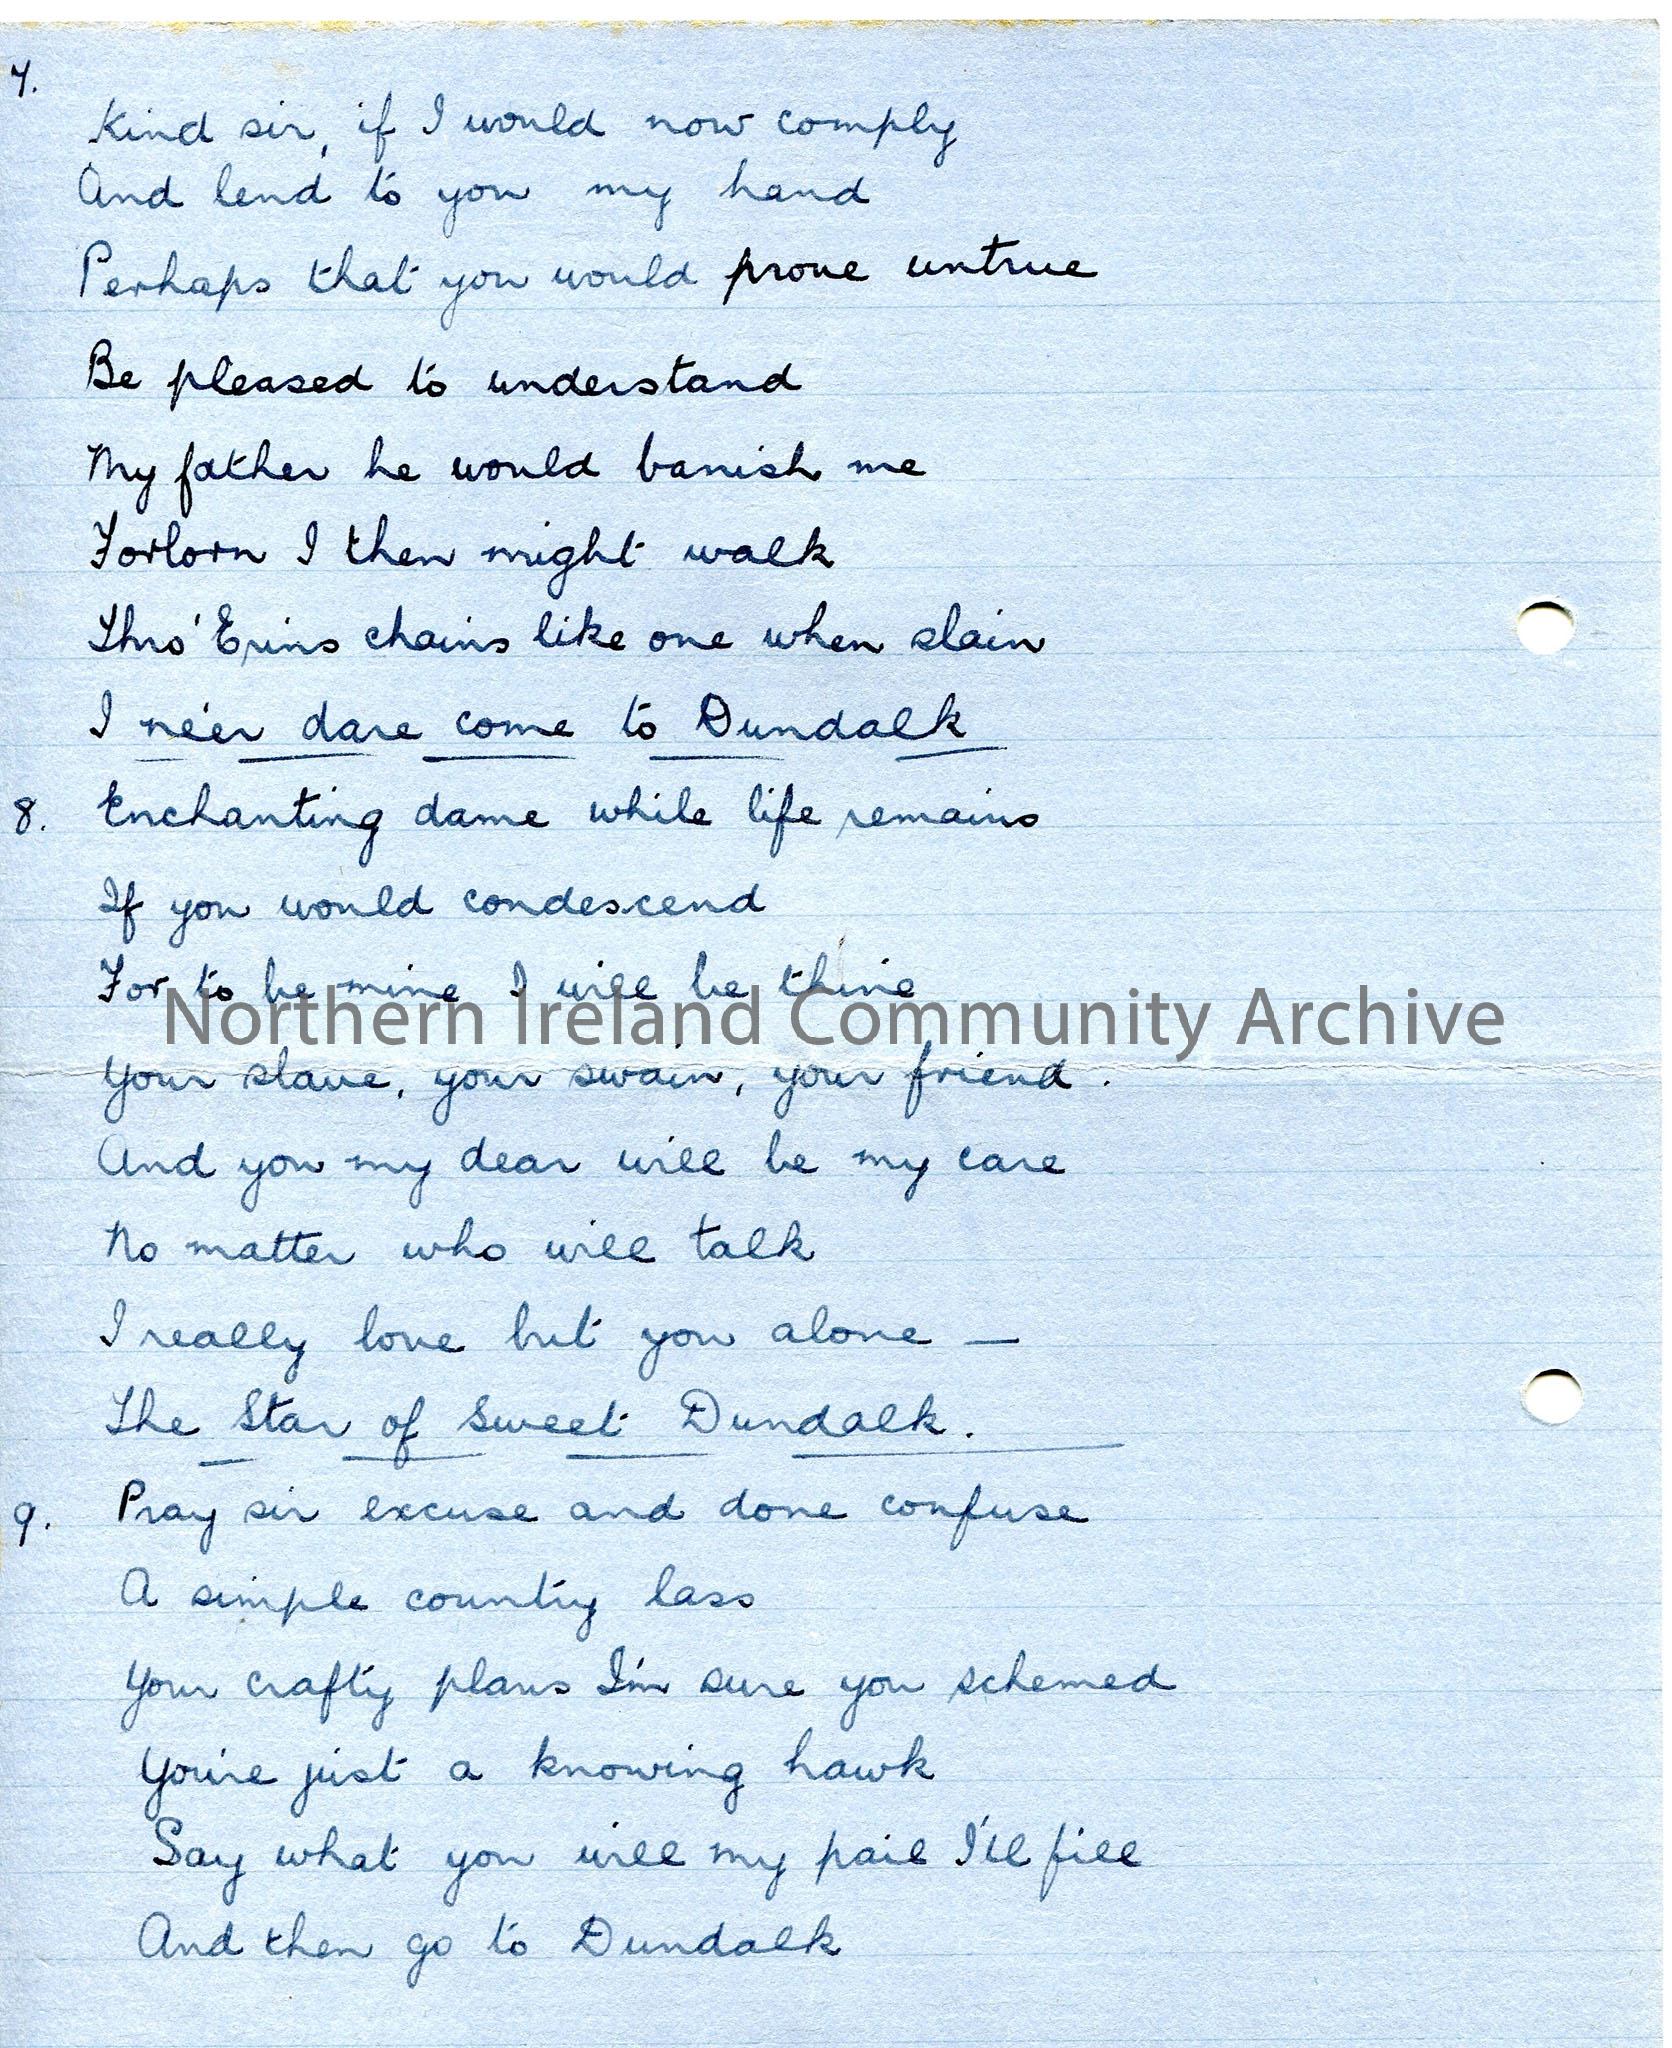 7.
Kind sir, if I would now comply
And lend to you my hand
Perhaps that you would prove untrue
Be pleased to understand
My father he would banish me
Forlorn I then might walk
Thro' Erins chains like one when slain
I ne'er dare come to Dundalk
8. Enchanting dame while life remains
If you would condescend
For to be mine I will be thine
Northern Ireland Community Archive
Your slave, your swain, your friend.
And you my dear will be my care
No matter who will talk
I really love but you alone —
The Star of Sweet Dundalk.
9. Pray sir excuse and done confuse
A simple country lass
Your crafty plans I'm sure you schemed
You're just a knowing hawk
Say what you will my pail I'll fill
And then go to Dundalk